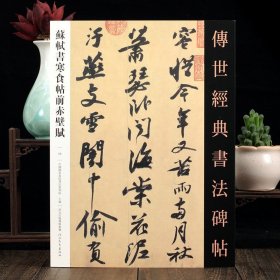 傳世經典書法碑帖
容惜今年又苦雨兩月秋
蕭瑟卧聞海棠花泥
污燕支雪闇中偷負
蘇軾書寒食帖前赤壁賦